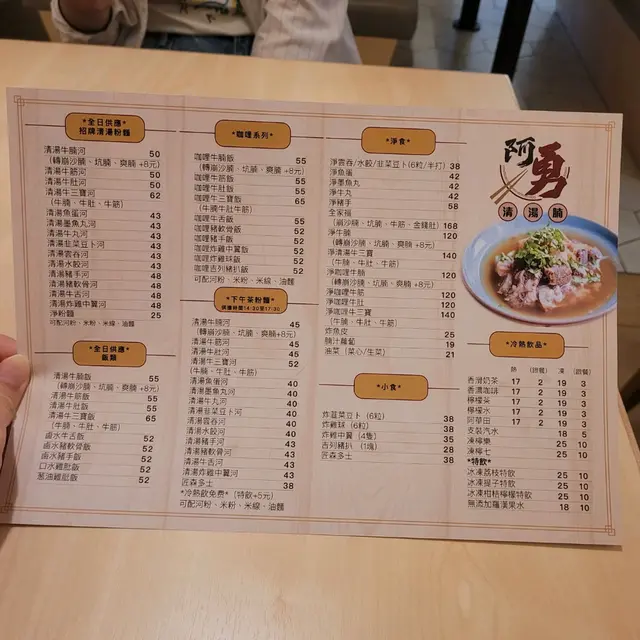 *全日供應*
招牌清湯粉麵
清湯牛腩河 50
(轉崩沙腩、坑腩、爽腩 +8元)
清湯牛筋河 50
清湯牛肚河 50
清湯牛三寶河 62
(牛腩、牛肚、牛筋)
清湯魚蛋河 43
清湯墨魚丸河 43
清湯牛丸河 43
清湯韭菜豆卜河 43
清湯雲吞河 43
清湯水餃河 43
清湯豬手河 48
清湯豬軟骨河 48
清湯牛舌河 48
清湯炸雞中翼河 48
淨粉麵 25
可配河粉、米粉、米線、油麵
*全日供應*
飯類
清湯牛腩飯 55
(轉崩沙腩、坑腩、爽腩 +8元)
清湯牛筋飯 55
清湯牛肚飯 55
清湯牛三寶飯 65
(牛腩、牛肚、牛筋)
鹵水牛舌飯 52
鹵水豬軟骨飯 52
鹵水豬手飯 52
口水雞髀飯 52
葱油雞髀飯 52
*咖喱系列*
咖喱牛腩飯 55
(轉崩沙腩、坑腩、爽腩 +8元)
咖喱牛筋飯 55
咖喱牛肚飯 55
咖喱牛三寶飯 65
(牛腩牛肚牛筋)
咖喱牛舌飯 55
咖喱豬軟骨飯 52
咖喱豬手飯 52
咖喱炸雞中翼飯 52
咖喱炸雞球飯 52
咖喱吉列豬扒飯 52
可配河粉、米粉、米線、油麵
*下午茶粉麵*
供應時間14:30至17:30
清湯牛腩河 45
(轉崩沙腩、坑腩、爽腩+8元)
清湯牛筋河 45
清湯牛肚河 45
清湯牛三寶河 52
(牛腩、牛肚、牛筋)
清湯魚蛋河 40
清湯墨魚丸河 40
清湯牛丸河 40
清湯韭菜豆卜河 40
清湯雲吞河 40
清湯水餃河 40
清湯豬手河 43
清湯豬軟骨河 43
清湯牛舌河 43
清湯炸雞中翼河 43
匠森多士 38
*冷熱飲免費* (特飲+5元)
可配河粉、米粉、米線、油麵
*淨食*
淨雲吞/水餃/韭菜豆卜(6粒/半打) 38
淨魚蛋 42
淨墨魚丸 42
淨牛丸 42
淨豬手 58
全家福
(崩沙腩、坑腩、牛筋、金錢肚) 168
淨牛腩 120
(轉崩沙腩、坑腩、爽腩 +8元)
淨清湯牛三寶 140
(牛腩、牛肚、牛筋)
淨咖喱牛腩 120
(轉崩沙腩、坑腩、爽腩 +8元)
淨咖喱牛筋 120
淨咖喱牛肚 120
淨咖喱牛三寶 140
(牛腩、牛肚、牛筋)
炸魚皮 25
腩汁蘿蔔 19
油菜 (菜心/生菜) 21
*小食*
炸韮菜豆卜 (6粒) 38
炸雞球 (6粒) 38
炸雞中翼 (4隻) 35
吉列豬扒 (1塊) 28
匠森多士 38
阿勇
清湯腩
*冷熱飲品*
熱 (跟餐) 凍 (跟餐)
香滑奶茶 17 2 19 3
香濃咖啡 17 2 19 3
檸檬茶 17 2 19 3
檸檬水 17 2 19 3
阿華田 17 2 19 3
支裝汽水 18 5
凍檸樂 25 10
凍檸七 25 10
*特飲*
冰凍荔枝特飲 25 10
冰凍提子特飲 25 10
冰凍柑桔檸檬特飲 25 10
無添加羅漢果水 18 10